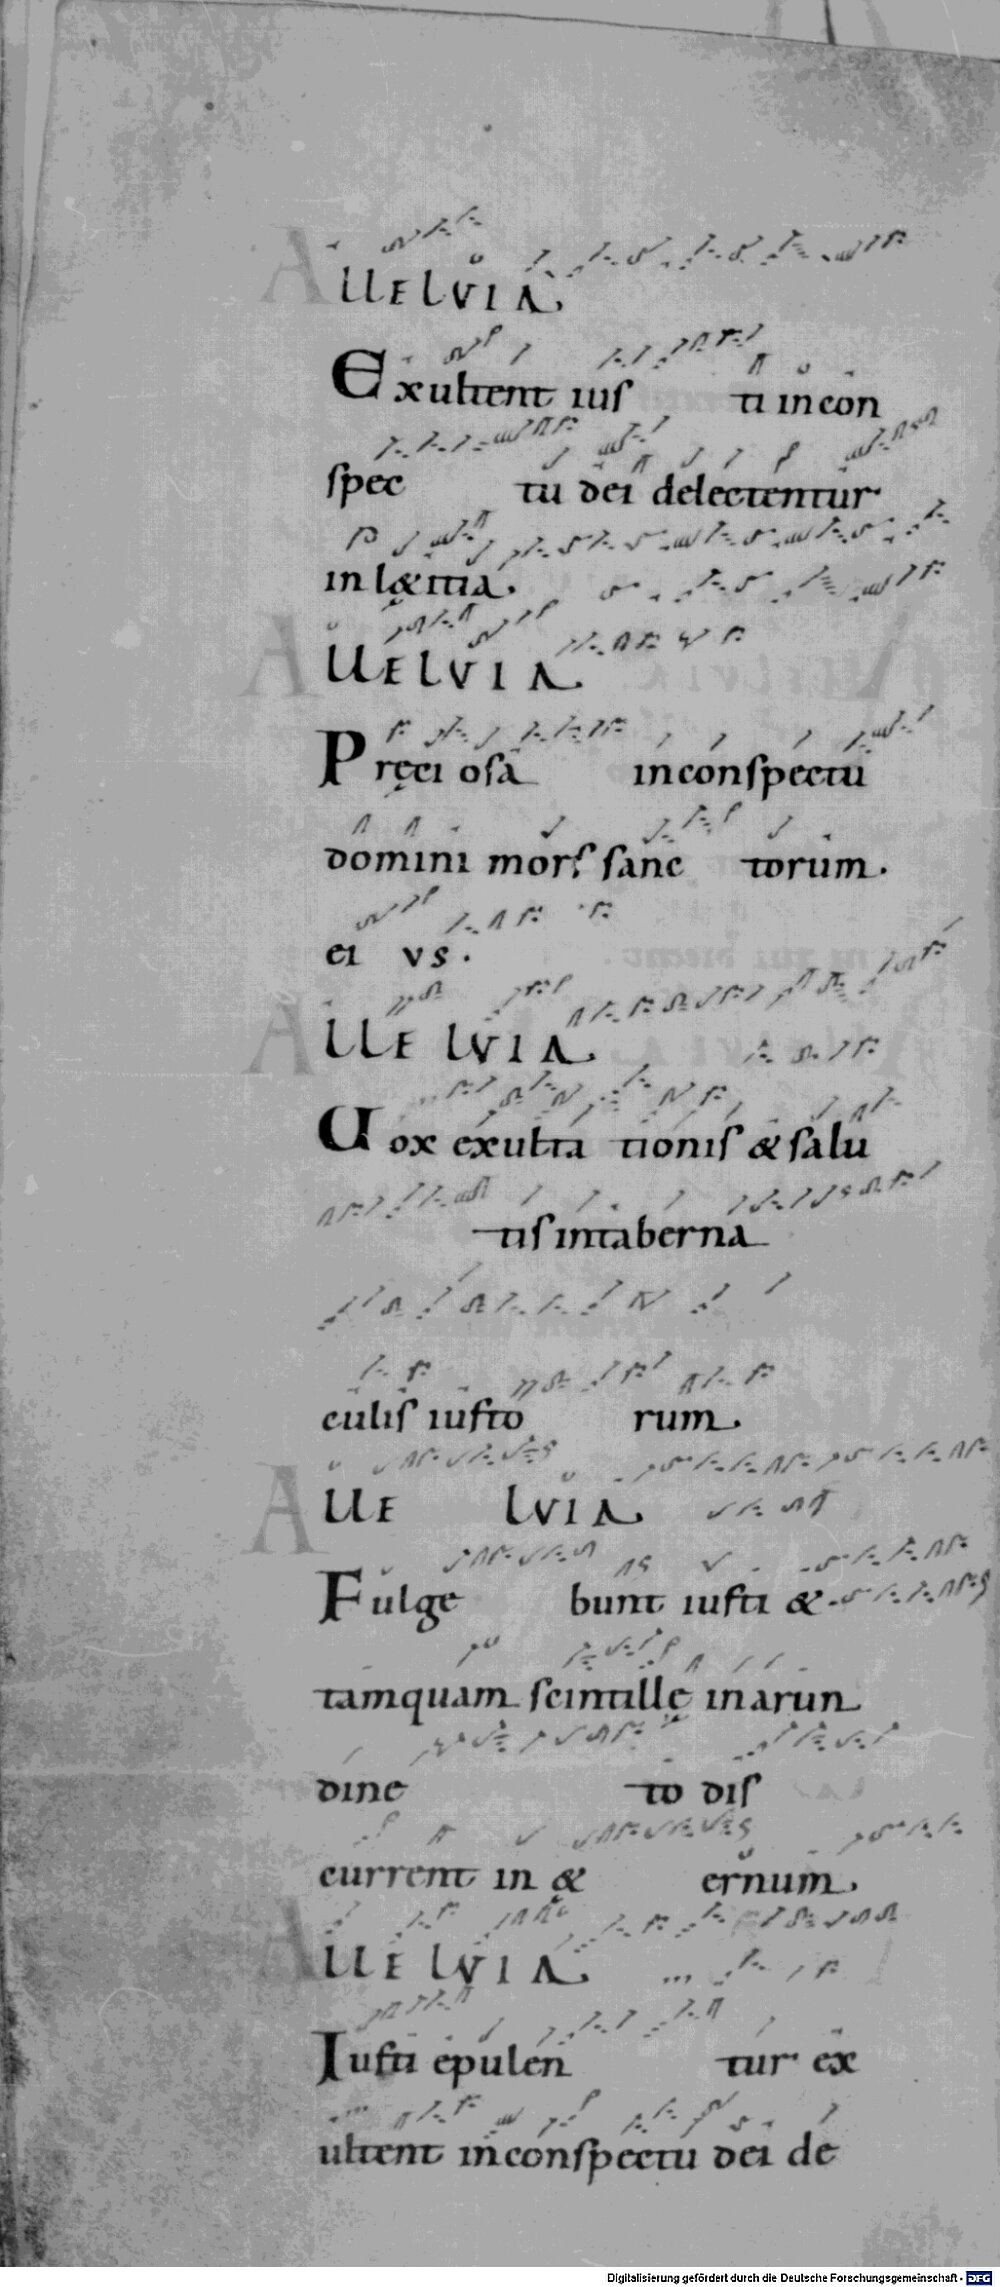 ALLELVIA.
Exultent ius ti in con
spec tu dei delectentur
in lętitia.
ALLELVIA.
Pręci osa in conspectu
domini mors sanc torum.
ei vs.
ALLE LVIA.
Vox exulta tionis & salu
tis in taberna
culis iusto rum.
ALLE LVIA.
Fulge bunt iusti &
tamquam scintillę in arun
dine to dis
current in & ernum.
ALLE LVIA.
Iusti epulen tur ex
ultent in conspectu dei de
Digitalisierung gefördert durch die Deutsche Forschungsgemeinschaft - DFG